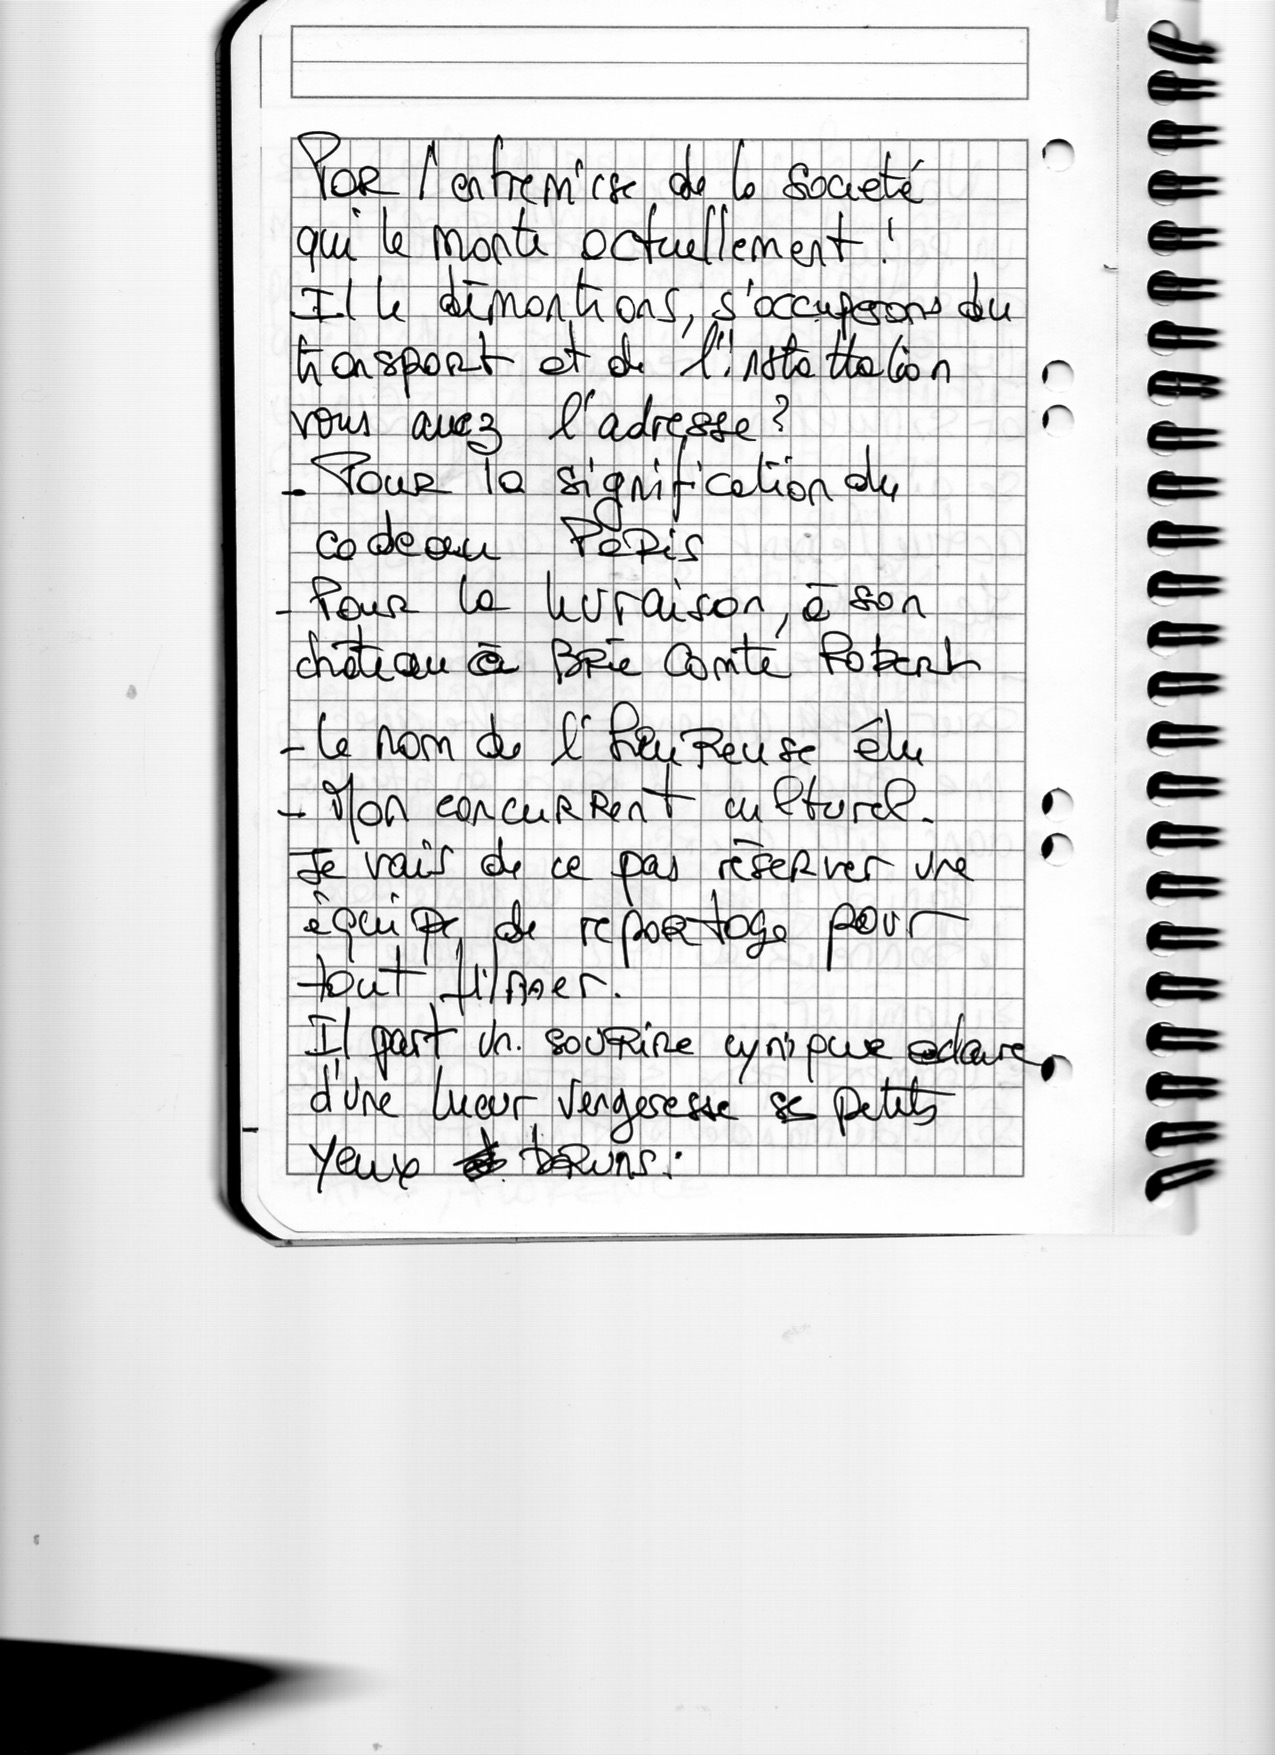 Par l'entremise de la société
qui le monte actuellement !
Il le démontions, s'occuperons du
transport et de l'installation
vous avez l'adresse ?
- Pour la signification du
cadeau Paris
- Pour la livraison, à son
château à BRIE Comte Robert
- Le nom de l'heureuse élu
- Mon concurrent culturel.
Je vais de ce pas réserver une
équipe de reportage pour
tout filmer.
Il part un sourire cynique eclaire
d'une lueur vengeresse ses petits
yeux bruns.